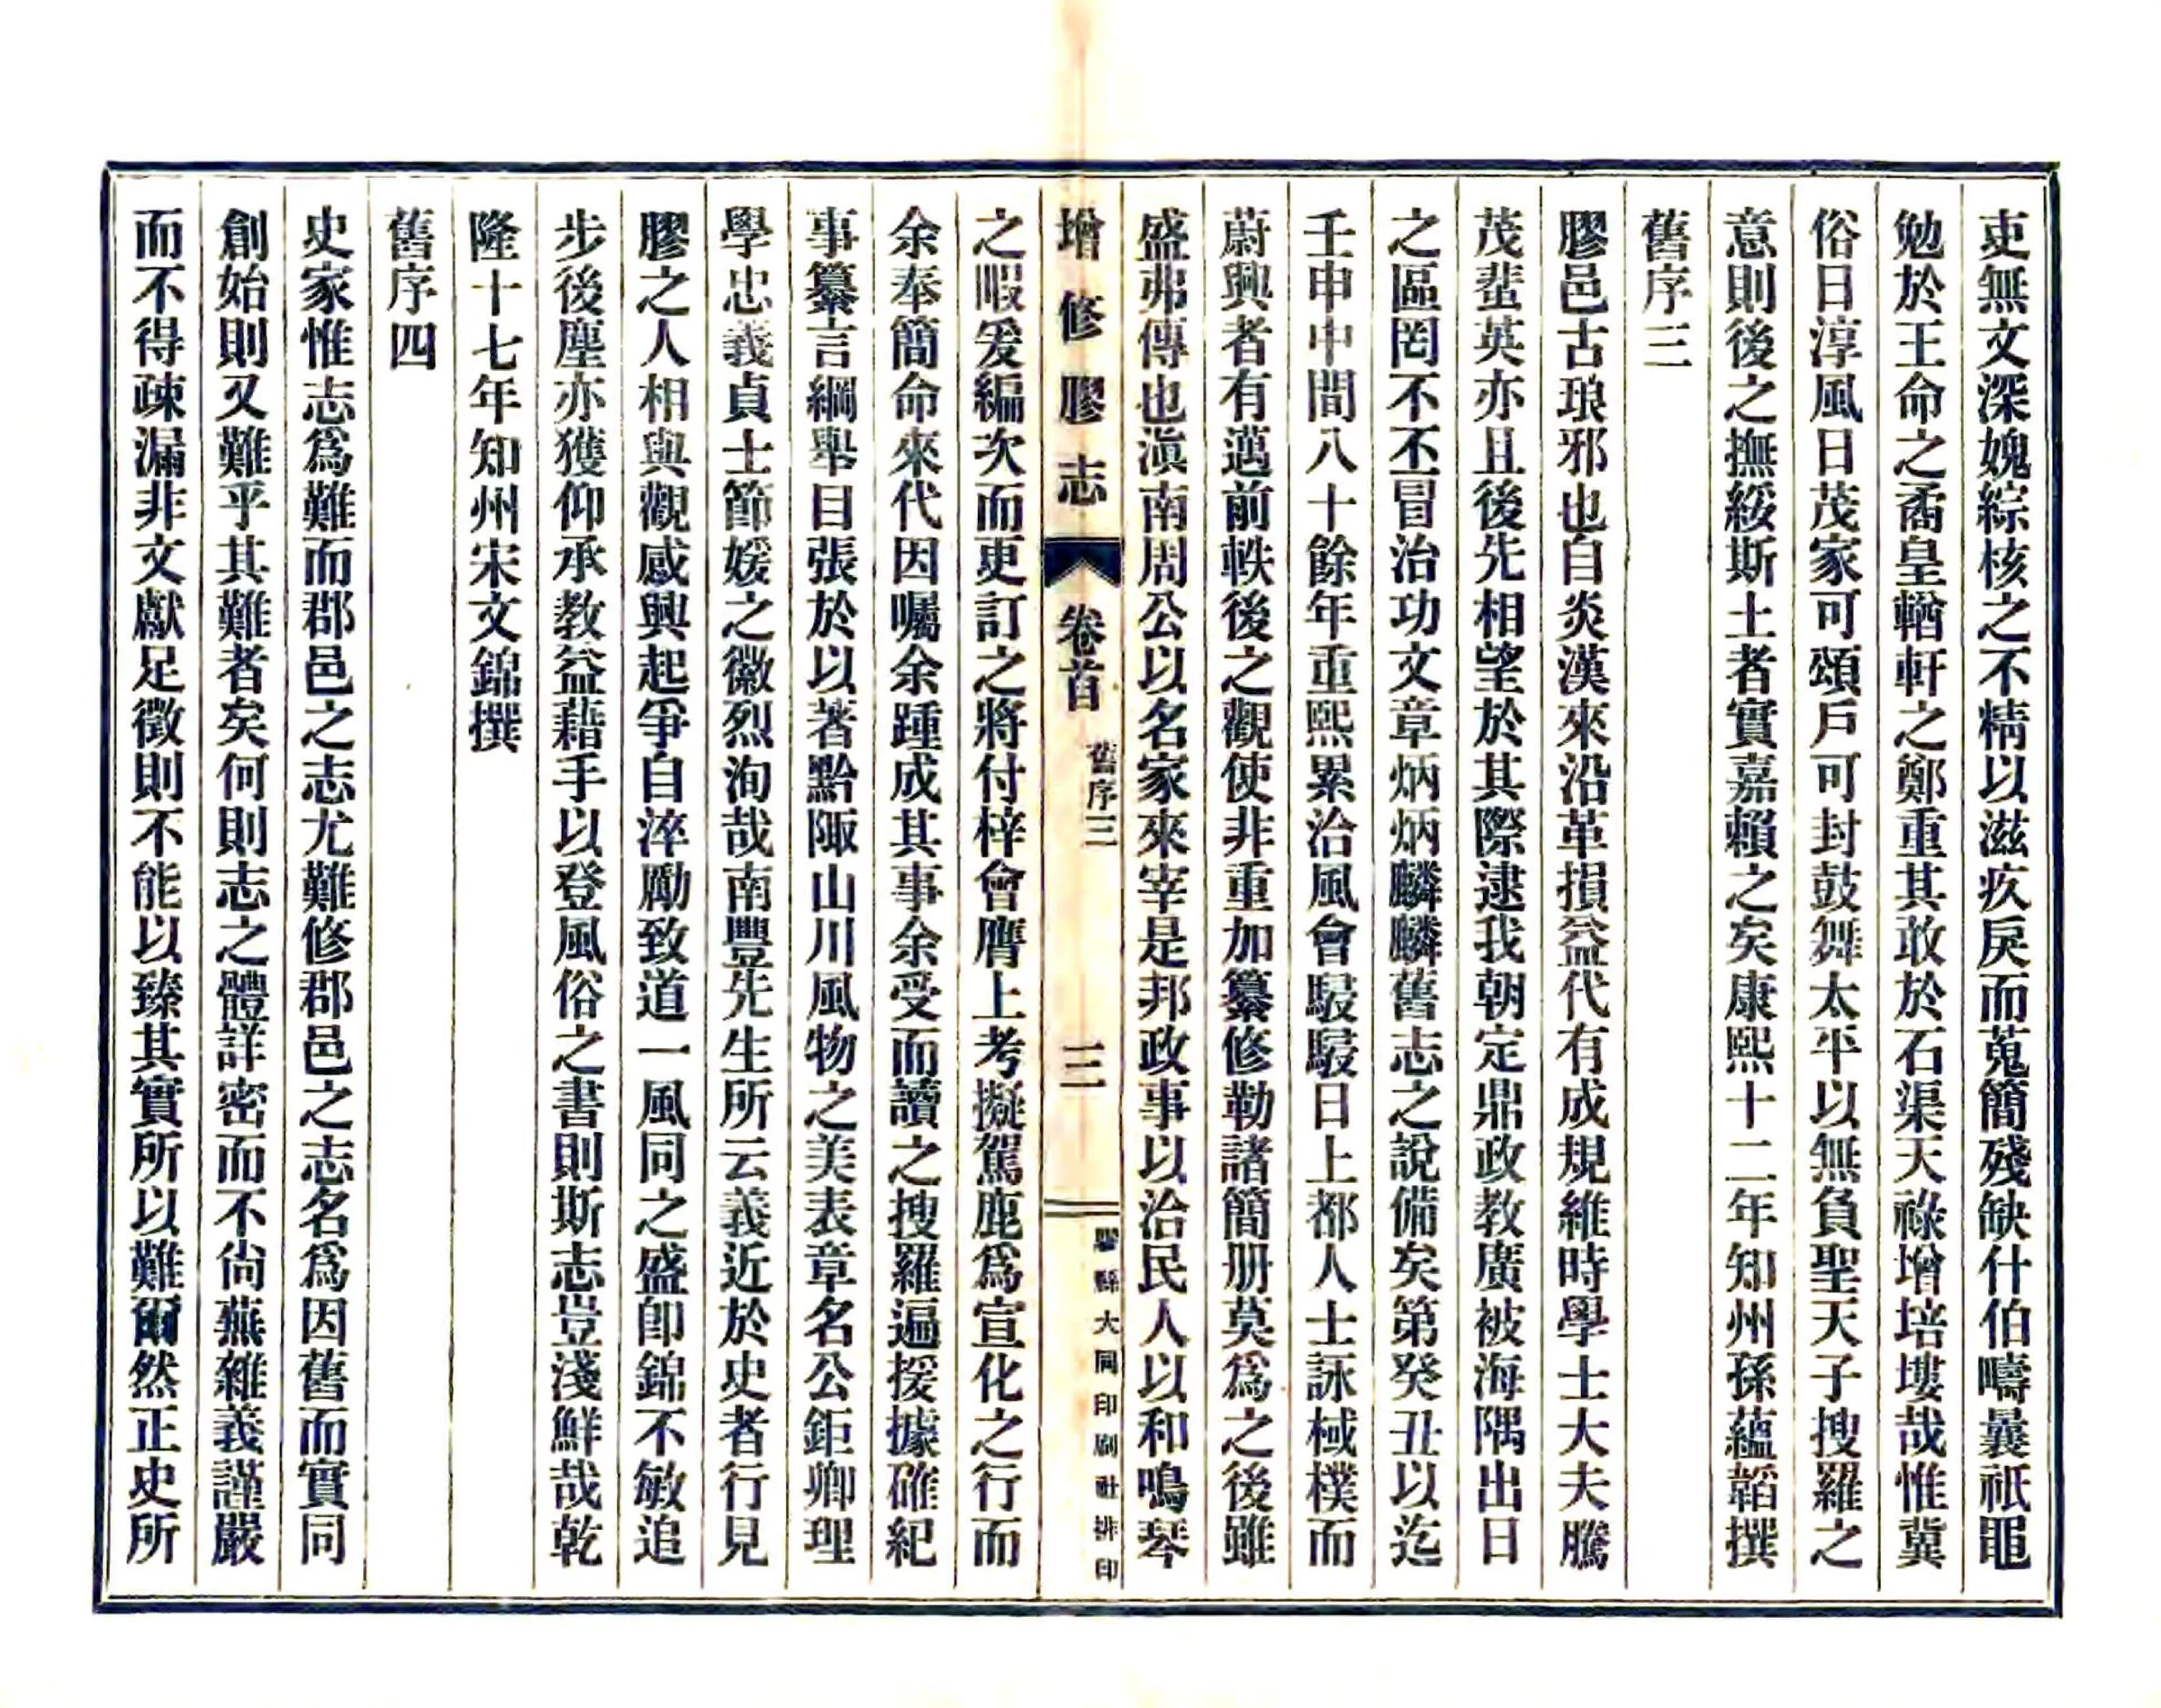 吏無文深媿綜核之不精以滋疚戾而蒐簡殘缺什伯疇曩祇黽
勉於王命之矞皇輶軒之鄭重其敢於石渠天祿增培塿哉惟冀
俗日淳風日茂家可頌戶可封鼓舞太平以無負聖天子搜羅之
意則後之撫綏斯土者實嘉賴之矣康熙十二年知州孫蘊韜撰
舊序三
膠邑古琅邪也自炎漢來沿革損益代有成規維時學士大夫騰
茂蜚英亦且後先相望於其際逮我朝定鼎政教廣被海隅出日
之區罔不丕冒治功文章炳炳麟麟舊志之說備矣第癸丑以迄
壬申中間八十餘年重熙累洽風會駸駸日上都人士詠棫樸而
蔚興者有邁前軼後之觀使非重加纂修勒諸簡册莫爲之後雖
盛弗傳也滇南周公以名家來宰是邦政事以洽民人以和鳴琴
增修膠志 卷首 舊序三 三 膠縣大同印刷社排印
之暇爰編次而更訂之將付梓會膺上考擬駕鹿爲宣化之行而
余奉簡命來代因囑余踵成其事余受而讀之搜羅遍援據確紀
事纂言綱舉目張於以著黔陬山川風物之美表章名公鉅卿理
學忠義貞士節媛之徽烈洵哉南豐先生所云義近於史者行見
膠之人相與觀感興起爭自淬勵致道一風同之盛卽錦不敏追
步後塵亦獲仰承教益藉手以登風俗之書則斯志豈淺鮮哉乾
隆十七年知州宋文錦撰
舊序四
史家惟志爲難而郡邑之志尤難修郡邑之志名爲因舊而實同
創始則又難乎其難者矣何則志之體詳密而不尙蕪雜義謹嚴
而不得疎漏非文獻足徵則不能以臻其實所以難爾然正史所